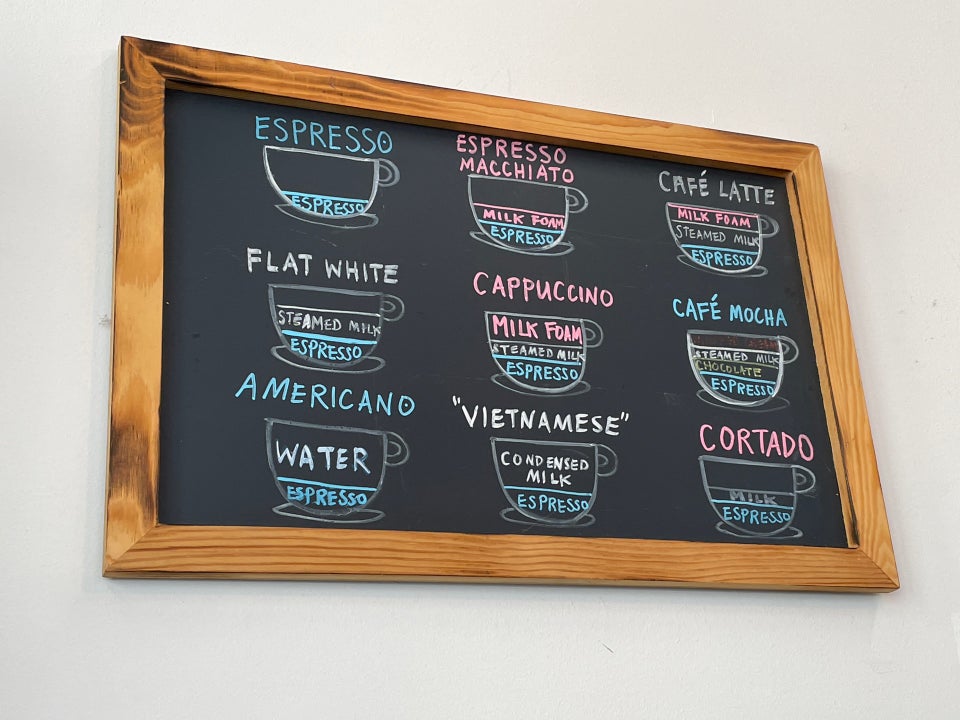 ESPRESSO
ESPRESSO
ESPRESSO
MACCHIATO
MILK FOAM
ESPRESSO
CAFÉ LATTE
MILK FOAM
STEAMED MILK
ESPRESSO
FLAT WHITE
STEAMED MILK
ESPRESSO
CAPPUCCINO
MILK FOAM
STEAMED MILK
ESPRESSO
CAFÉ MOCHA
STEAMED MILK
CHOCOLATE
ESPRESSO
AMERICANO
WATER
ESPRESSO
"VIETNAMESE"
CONDENSED
MILK
ESPRESSO
CORTADO
MILK
ESPRESSO